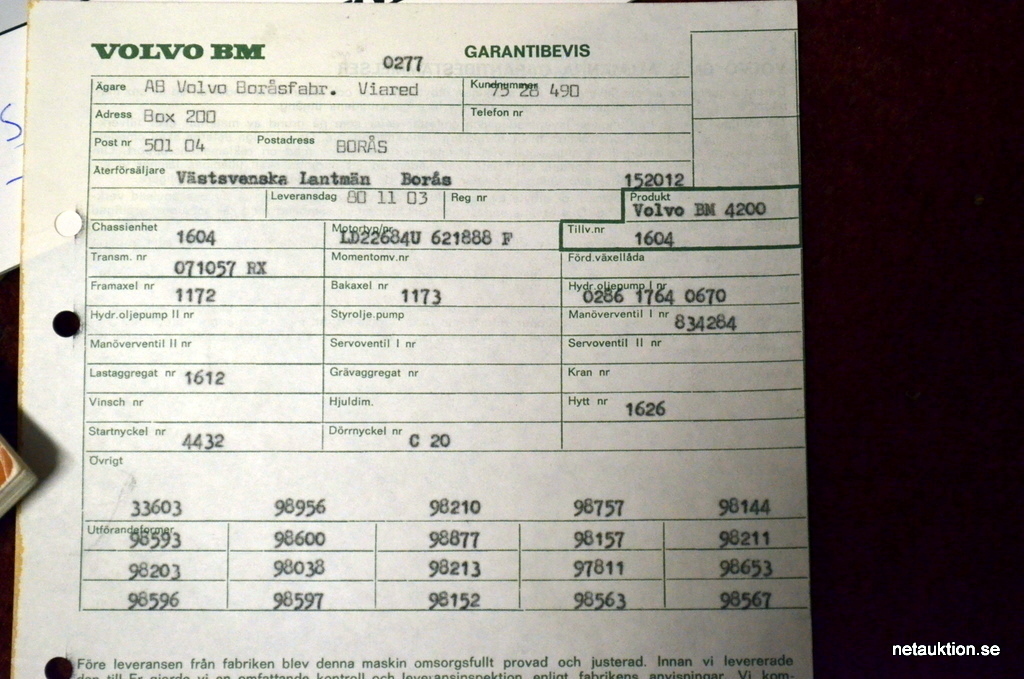 VOLVO BM
GARANTIBEVIS
0277
Ägare AB Volvo Boråsfabr. Viared Kundnummer 75 28 490
Adress Box 200 Telefon nr
Post nr 501 04 Postadress BORÅS
Återförsäljare Västsvenska Lantmän Borås 152012
Leveransdag 80 11 03 Reg nr Produkt Volvo BM 4200
Chassienhet 1604 Motortyp/nr LD22684U 621888 F Tillv.nr 1604
Transm. nr 071057 RX Momentomv.nr Förd.växellåda
Framaxel nr 1172 Bakaxel nr 1173 Hydr.oljepump I nr 0286 1764 0670
Hydr.oljepump II nr Styrolje.pump Manöverventil I nr 834284
Manöverventil II nr Servoventil I nr Servoventil II nr
Lastaggregat nr 1612 Grävaggregat nr Kran nr
Vinsch nr Hjuldim. Hytt nr 1626
Startnyckel nr 4432 Dörrnyckel nr C 20
Övrigt
33603 98956 98210 98757 98144
Utförandeformer 98593 98600 98877 98157 98211
98203 98038 98213 97811 98653
98596 98597 98152 98563 98567
Före leveransen från fabriken blev denna maskin omsorgsfullt provad och justerad. Innan vi levererade
den till Er gjorde vi en omfattande kontroll och leveransinspektion enligt fabrikens anvisningar. Vi kom-
netauktion.se